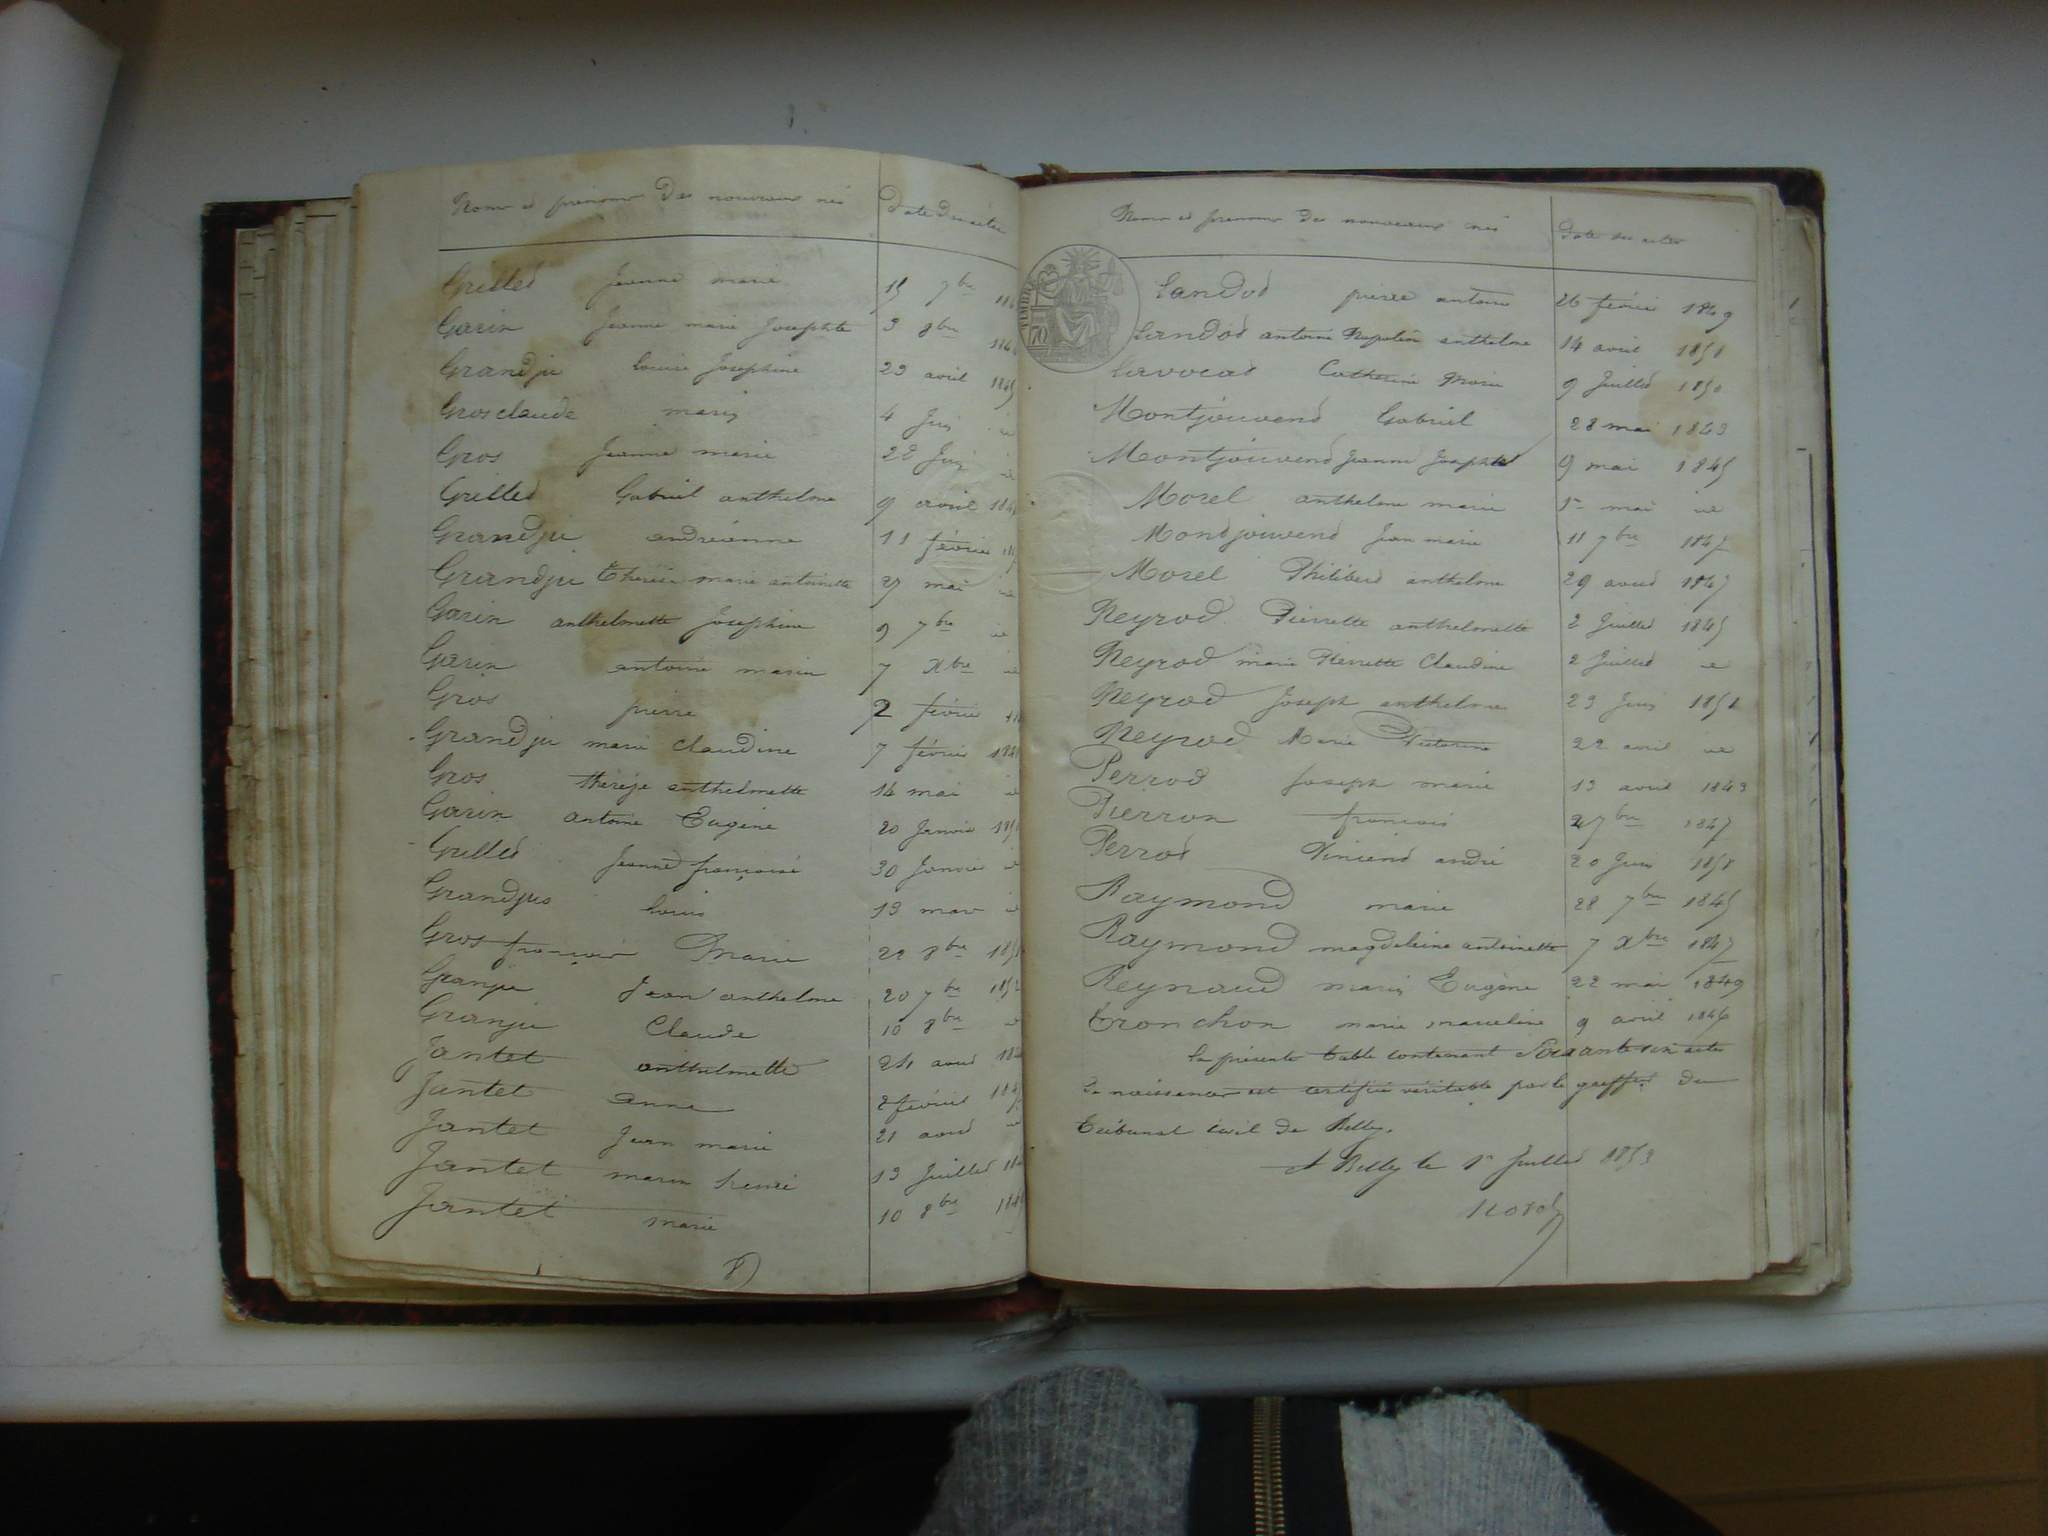 Noms et prénoms des nouveaux nés Date des actes
Grillet Jeanne marie 15 7bre
Garin Jeanne marie Josephte 3 8bre
Grandju louise Josephine 23 avril 1845
Grosclaude marie 4 Juin id
Gros Jeanne marie 28 Juin id
Grillet Gabriel anthelme 9 avril
Grandju andréanne 11 février
Grandju Thérèse marie antoinette 27 mai id
Garin anthelmette Josephine 9 7bre id
Garin antoine marie 7 Xbre id
Gros pierre 2 février
Grandju marie claudine 7 février
Gros thérèse anthelmette 14 mai id
Garin antoine Eugène 20 Janvier
Grillet Jeanne françoise 30 Janvier id
Grandjus louis 13 mars id
Gros françois Marie 22 8bre
Granju Jean anthelme 20 7bre 1852
Granju Claude 10 8bre id
Jantet anthelmette 24 aout
Jantet anne 2 février
Jantet Jean marie 21 aout id
Jantet marie henri 13 Juillet
Jantet marie 10 8bre
Noms et prénoms des nouveaux nés Date des actes
TIMBRE
70
Landot pierre antoine 26 février 1849
Landot antoine Napoléon anthelme 14 avril 1851
Lavocat Catherine Marie 9 Juillet 1850
Montjouvent Gabriel 28 mai 1843
Montjouvent Jeanne Josephte 9 mai 1845
Morel anthelme marie 1er mai id
Montjouvent Jean marie 11 7bre 1847
Morel Philibert anthelme 29 aout 1847
Neyrod Pierrette anthelmette 2 Juillet 1845
Neyrod marie Pierrette Claudine 2 Juillet id
Neyrod Joseph anthelme 23 Juin 1851
Neyrod Marie Victorine 22 avril id
Perrod Joseph marie 13 avril 1843
Pierron françois 7bre 1847
Perrod Vincent andré 20 Juin 1851
Raymond marie 28 7bre 1845
Raymond magdeleine antoinette 7 Xbre 1847
Reynaud marie Eugène 22 mai 1849
Tronchon marie marceline 9 avril 1846
la présente table contenant Soixante six actes
de naissances est certifiée véritable par le greffier du
Tribunal civil de Belley.
A Belley le 1er Juillet 1853